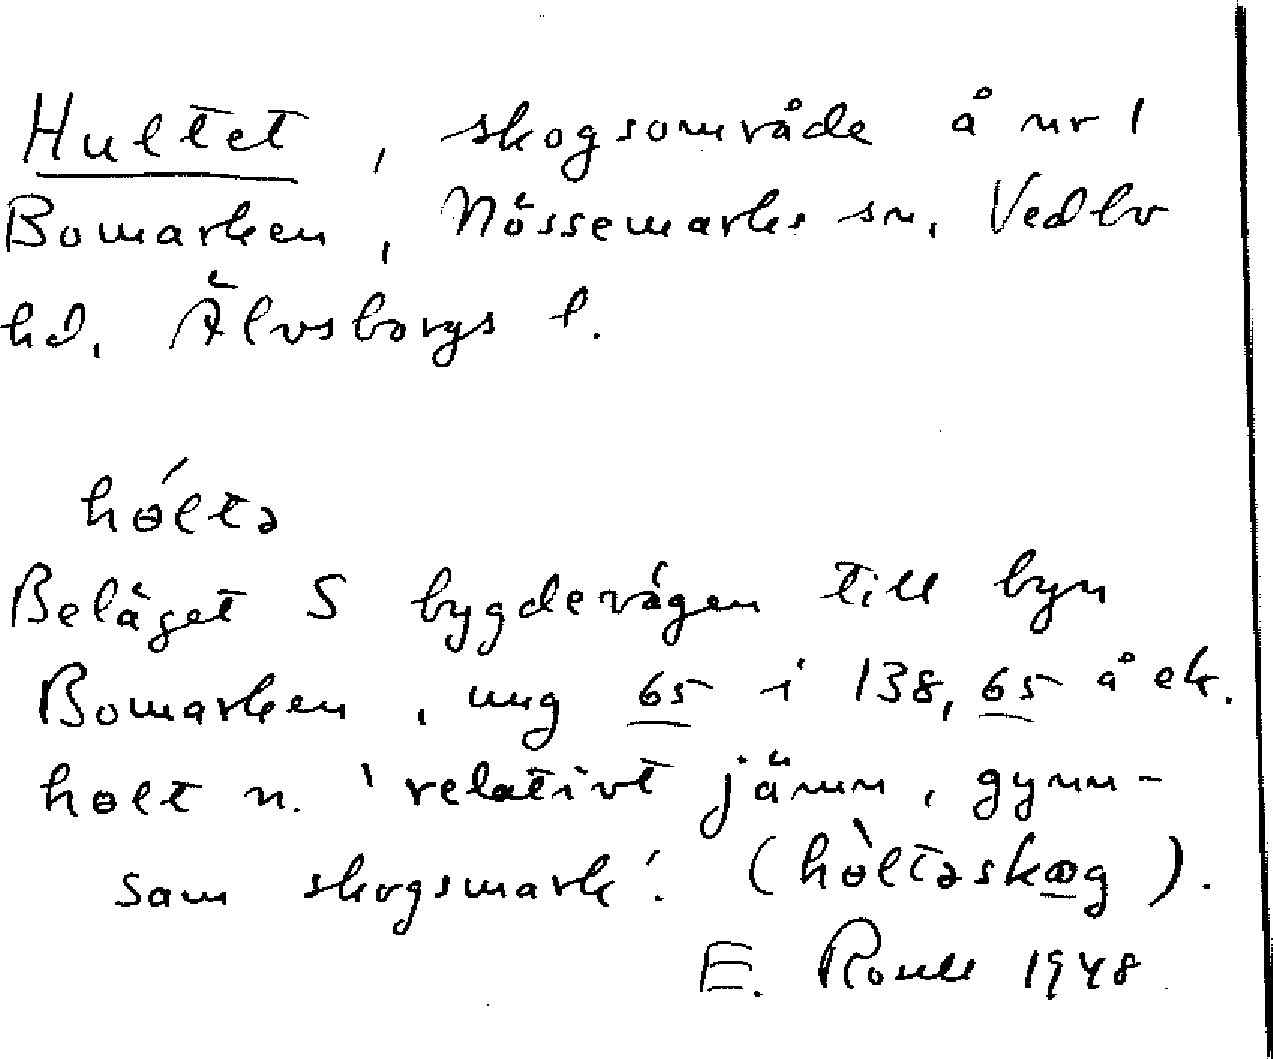 Hultet, skogsområde å nr 1
Bomarken, Nössemarks sn, Vedbo
hd, Älvsborgs l.
hɵ́ltə
Beläget S bygdevägen till byn
Bomarken, ung 65 i 138,65 å ek.
hɵlt n. 'relativt jämn, gynn-
sam skogsmark'. (hɵ̀ltəskøg).
E. 1948